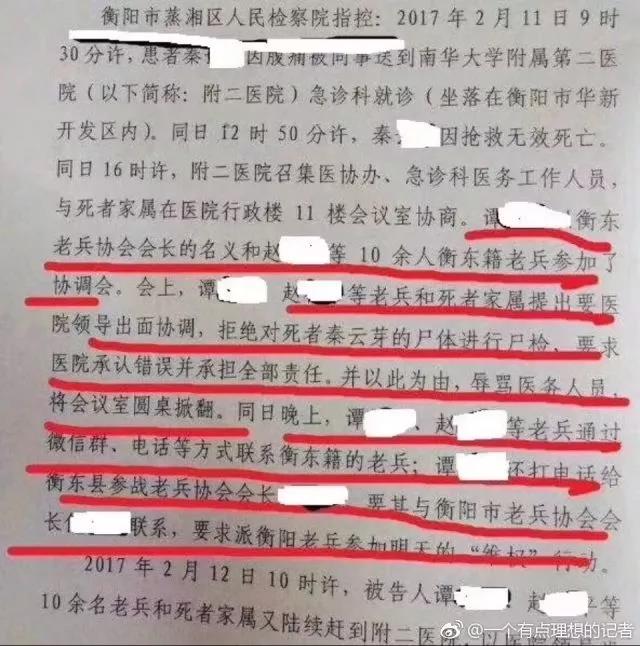 衡阳市蒸湘区人民检察院指控：2017年2月11日9时
30分许，患者秦 因腹痛被同事送到南华大学附属第二医
院（以下简称：附二医院）急诊科就诊（坐落在衡阳市华新
开发区内）。同日12时50分许，秦 因抢救无效死亡。
同日16时许，附二医院召集医协办、急诊科医务工作人员，
与死者家属在医院行政楼11楼会议室协商。谭 衡东
老兵协会会长的名义和赵 等10余人衡东籍老兵参加了
协调会。会上，谭 赵 等老兵和死者家属提出要医
院领导出面协调，拒绝对死者秦云芽的尸体进行尸检、要求
医院承认错误并承担全部责任。并以此为由，辱骂医务人员，
将会议室圆桌掀翻。同日晚上，谭 、赵 等老兵通过
微信群、电话等方式联系衡东籍的老兵；谭 还打电话给
衡东县参战老兵协会会长 要其与衡阳市老兵协会会
长 联系，要求派衡阳老兵参加明天的“维权”行动。
2017年2月12日10时许，被告人谭 赵 等
10余名老兵和死者家属又陆续赶到附二医院，以医院领导
@一个有点理想的记者